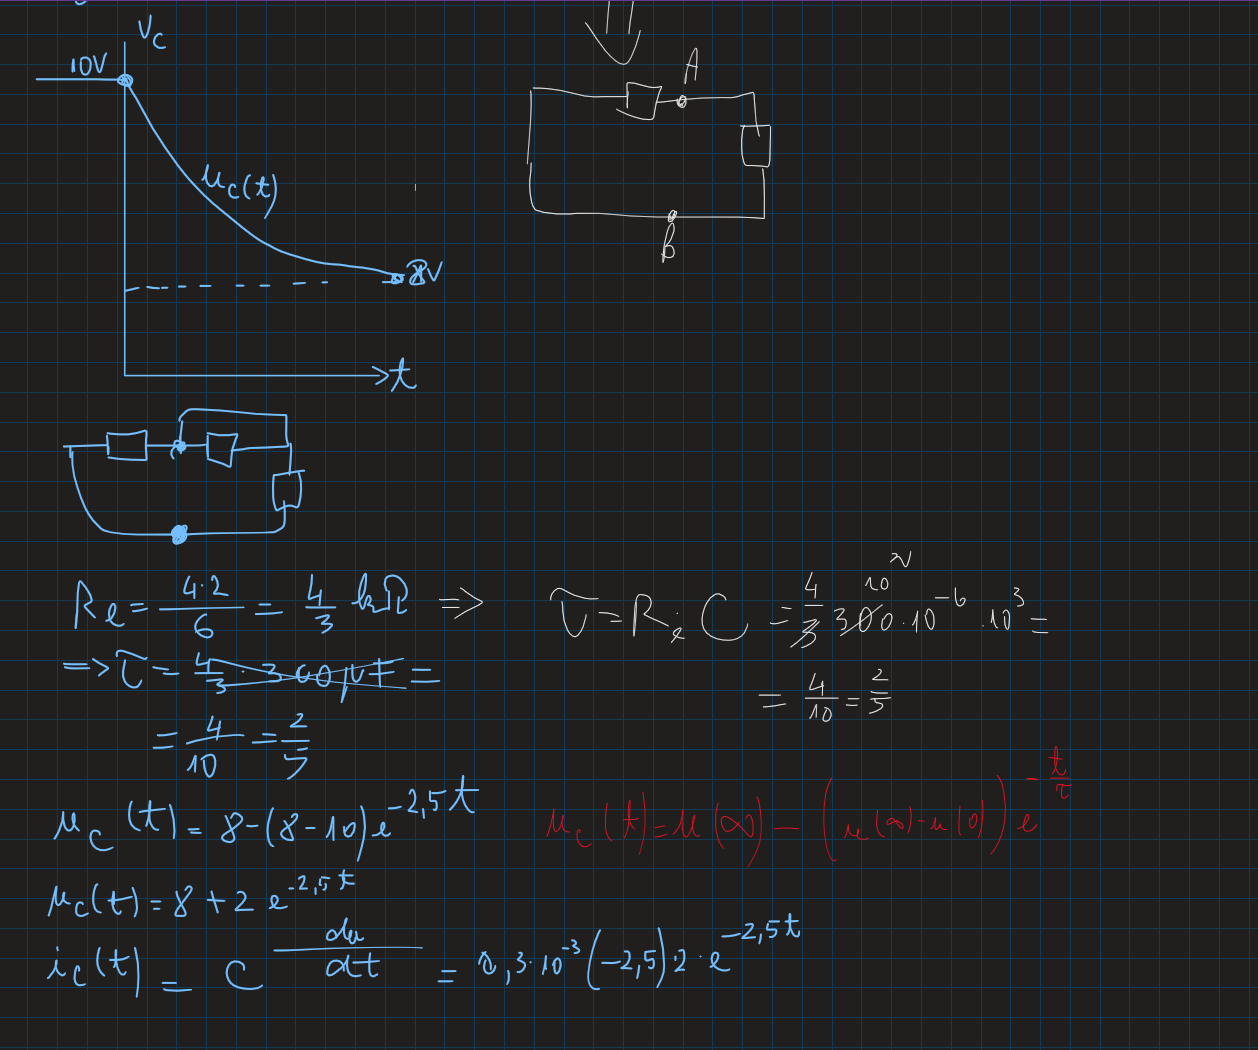 V_C
10V
A
u_C(t)
8V
B
t
R_e = 4·2/6 = 4/3 kΩ =>
τ = R_e C = 4/3 300·10^-6 ·10^3 =
=> τ = 4/3 · 300μF =
= 4/10 = 2/5
= 4/10 = 2/5
u_C(t) = 8-(8-10)e^-2,5t
u_C(t) = u(∞) - (u(∞)-u(0)) e^-t/τ
u_C(t) = 8 + 2 e^-2,5t
i_C(t) = C du/dt = 0,3·10^-3 (-2,5) 2·e^-2,5t